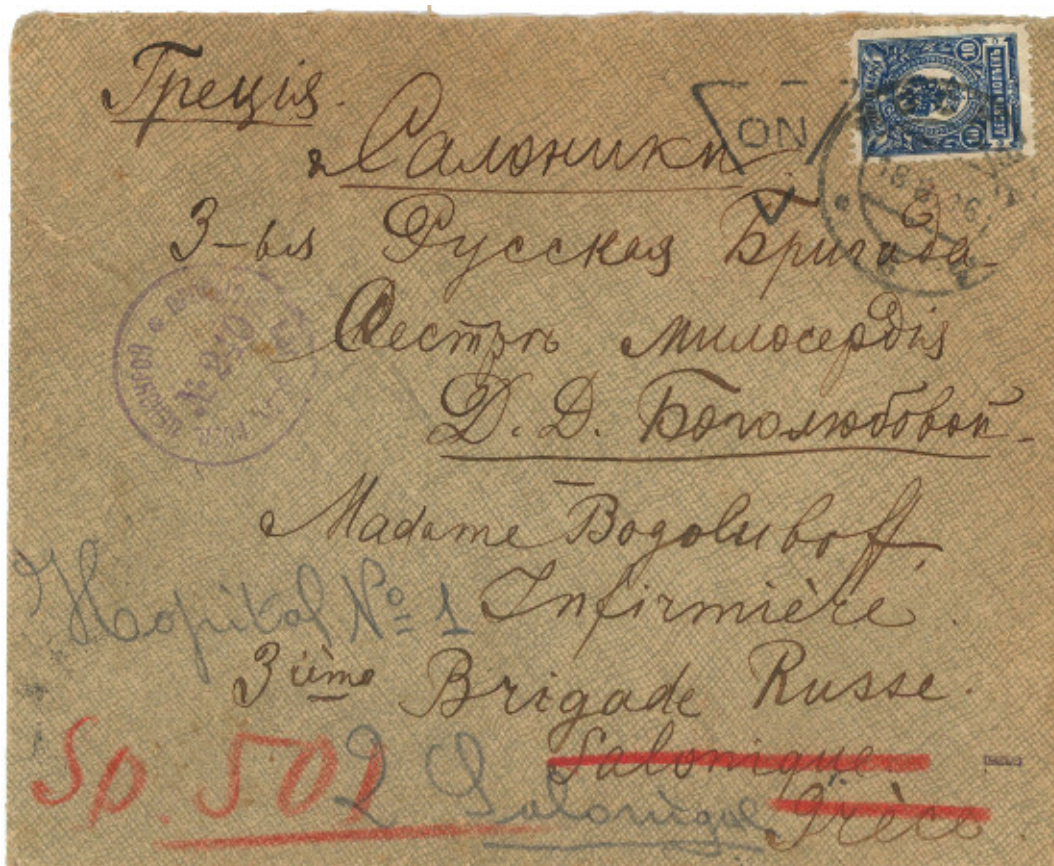 Греція.
Салоники
ON
3-ья Русская Бригада
Сестрѣ милосердія
Д. Д. Боголюбовой
Madame Bogoluboff,
Hopital Nº 1
Infirmière.
3ième Brigade Russe.
Salonique
Sp. 501
2 Salonique
Grèce.
10
10
ДЕСЯТЬ КОПѢЕКЪ